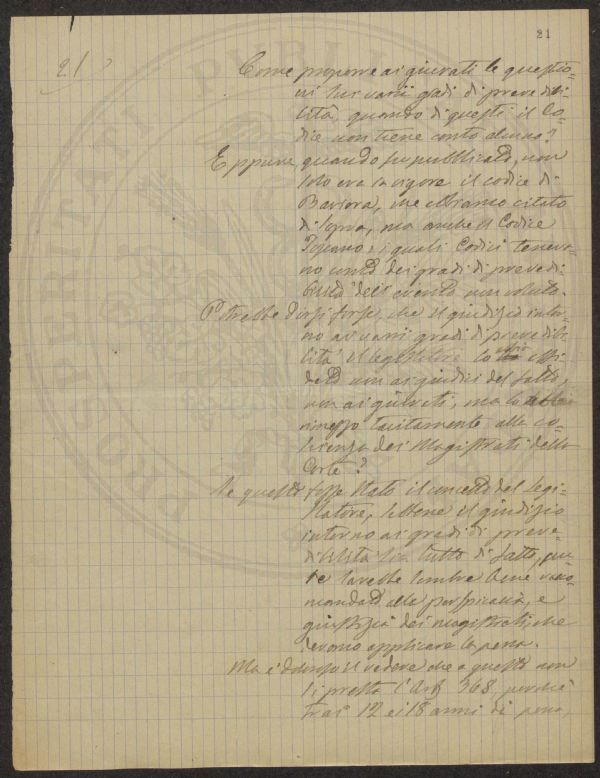 21
21
Come proporre ai giurati le questio=
ni sui varii gradi di prevedibi=
lità, quando di questi il Co=
dice non tiene conto alcuno?
Eppure quando fu pubblicato, non
solo era in vigore il codice di
Baviera, che abbiamo citato
di sopra, ma anche il Codice
Toscano: i quali Codici teneva=
no conto dei gradi di prevedi=
bilità dell'evento non voluto.
Potrebbe dirsi forse, che il giudizio intor=
no ai varii gradi di prevedibi=
lità il legislatore lo affi=
dato non ai giudici del fatto,
non ai giurati, ma lo
rimesso tacitamente alla co=
scienza dei Magistrati della
Corte?
Se questo fosse stato il concetto del legi=
slatore, sebbene il giudizio
intorno ai gradi di preve=
dibilità sia tutto di fatto, pu=
re sarebbe sembre bene racco=
mandato alla perspicacia, e
giustizia dei magistrati, che
devono applicare la pena.
Ma è doloroso il vedere che a questo non
si presta l'Art. 368, perchè
trai 12 e i 18 anni di pena,